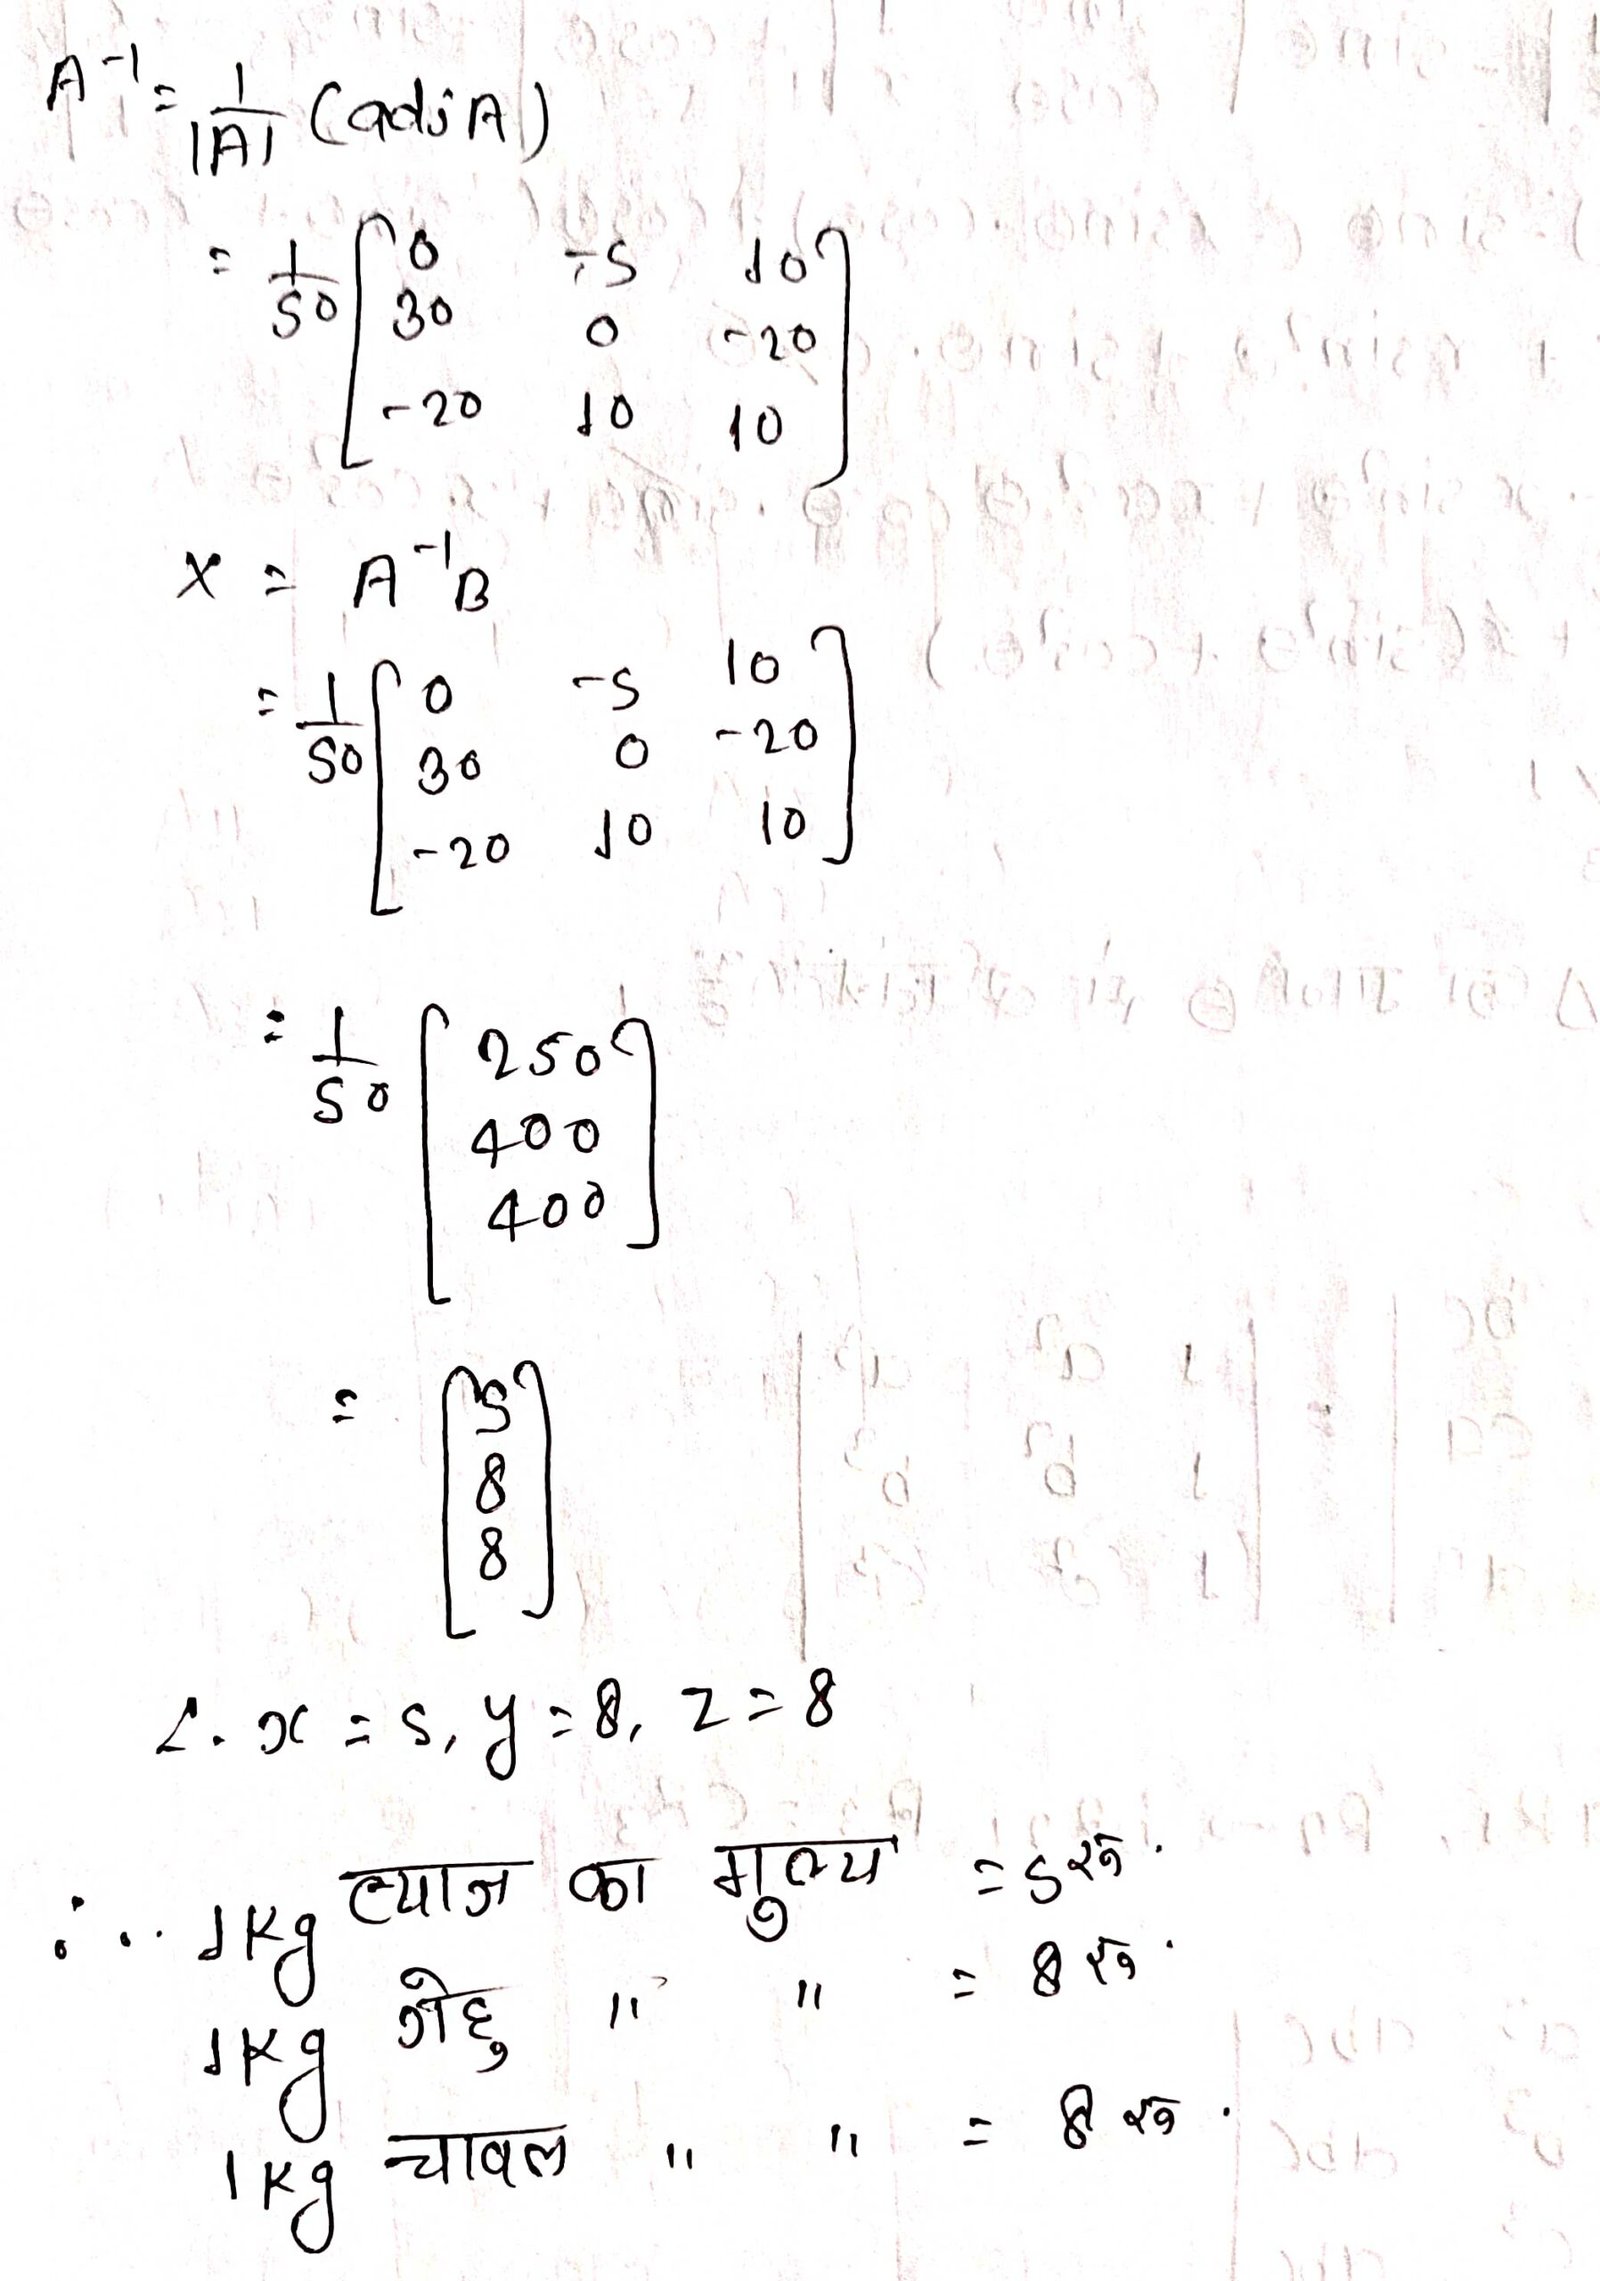 A⁻¹ = 1/|A| (adj A)
= 1/50 [0 -5 10
30 0 -20
-20 10 10]
X = A⁻¹B
= 1/50 [0 -5 10
30 0 -20
-20 10 10]
= 1/50 [250
400
400]
= [5
8
8]
∴ x = 5, y = 8, z = 8
∴ 1kg प्याज का मुल्य = 5 रु.
1kg गेहु " " = 8 रु.
1kg चावल " " = 8 रु.